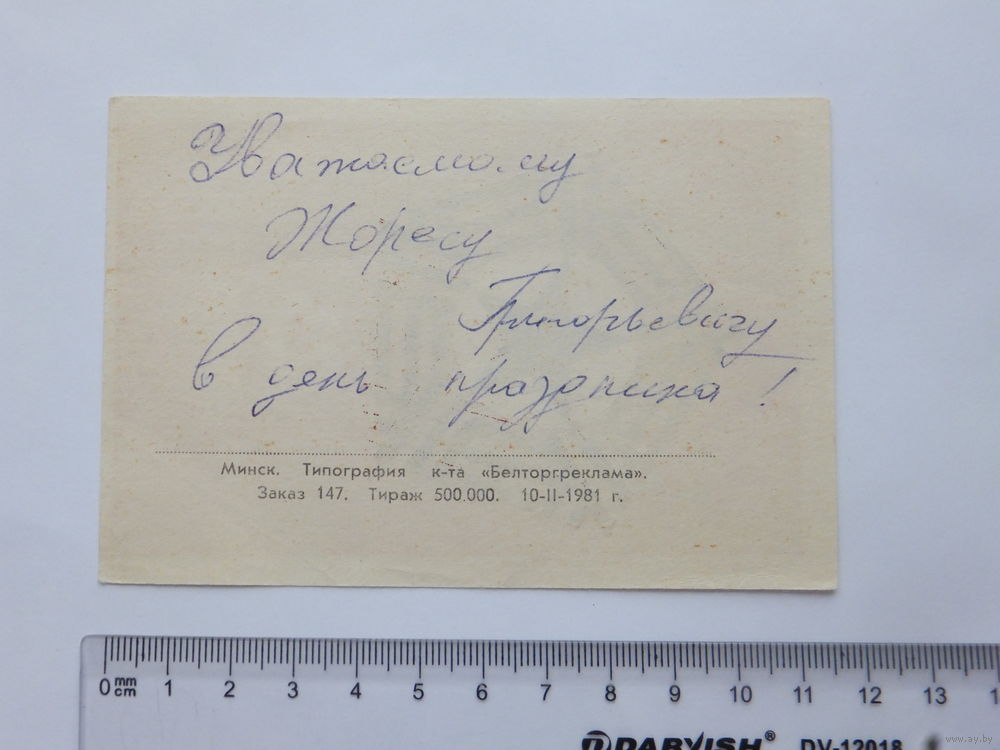 Уважаемому
Жоресу
Григорьевичу
в день праздника!
Минск. Типография к-та «Белторгреклама».
Заказ 147. Тираж 500.000. 10-II-1981 г.
0 mm cm 1 2 3 4 5 6 7 8 9 10 11 12 13
DARVISH® DV-12018
www.ay.by